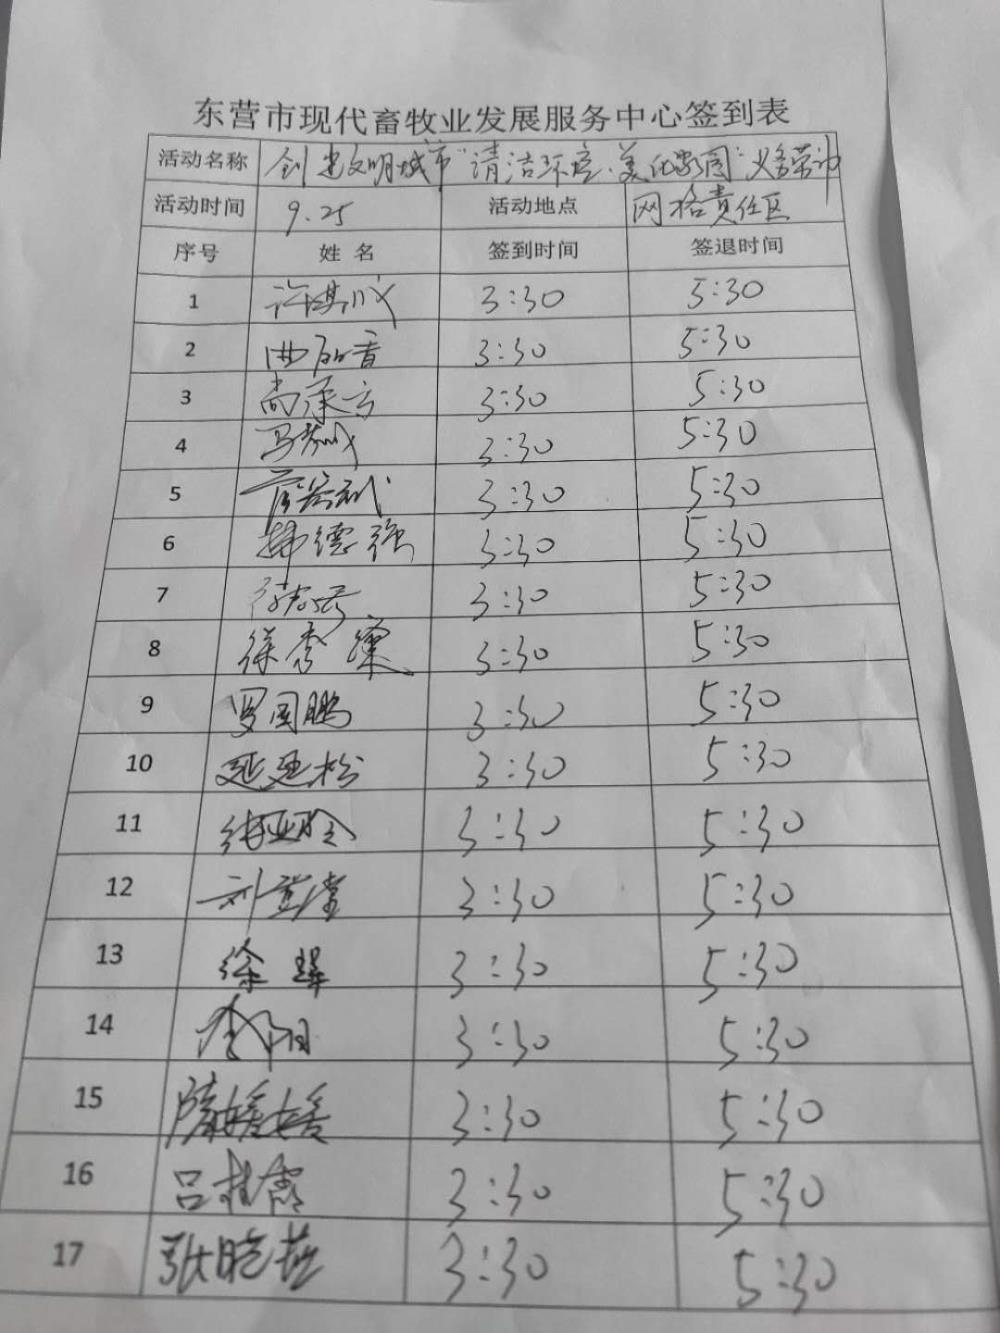 东营市现代畜牧业发展服务中心签到表
活动名称 创建文明城市"清洁环境、美化家园"义务劳动
活动时间 9.25 活动地点 网格责任区
序号 姓名 签到时间 签退时间
1 3:30 5:30
2 3:30 5:30
3 尚承云 3:30 5:30
4 3:30 5:30
5 3:30 5:30
6 韩德强 3:30 5:30
7 3:30 5:30
8 徐秀 3:30 5:30
9 罗国鹏 3:30 5:30
10 延廷松 3:30 5:30
11 3:30 5:30
12 刘登堂 3:30 5:30
13 徐 3:30 5:30
14 李阳 3:30 5:30
15 隋媛媛 3:30 5:30
16 吕桂霞 3:30 5:30
17 张晓燕 3:30 5:30